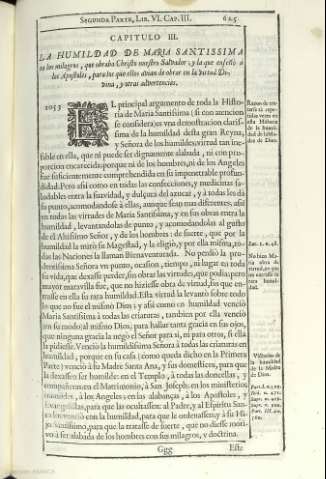 SEGUNDA PARTE, LIB. VI. CAP. III. 625
CAPITULO III.
LA HUMILDAD DE MARIA SANTISSIMA
en los milagros, que obraba Christo nuestro Salvador: y la que enseñò a
los Apostoles, para los que ellos avian de obrar en la virtud Di-
vina, y otras advertencias.
1053
EL principal argumento de toda la Histo-
ria de Maria Santissima (si con atencion
se considera) es vna demostracion claris-
sima de la humildad desta gran Reyna,
y Señora de los humildes, virtud tan ine-
fable en ella, que ni puede ser dignamente alabada, ni con pro-
porcion encarecida, porque ni de los hombres, ni de los Angeles
fue suficientemente comprehendida en su impenetrable profun-
didad. Pero assi como en todas las confecciones, y medicinas sa-
ludables entra la suavidad, y dulçura del azucar, y a todas les dà
su punto, acomodandose à ellas, aunque sean mas diferentes, assi
en todas las virtudes de Maria Santissima, y en sus obras entra la
humildad, levantandolas de punto, y acomodandolas al gusto
de el Altissimo Señor, y de los hombres: de suerte, que por la
humildad la mirò su Magestad, y la eligiò, y por ella misma, to-
das las Naciones la llaman Bienaventurada. No perdiò la pru-
dentissima Señora vn punto, ocasion, tiempo, ni lugar en toda
su vida, que dexasse perder, sin obrar las virtudes, que podia; pero
mayor maravilla fue, que no hiziesse obra de virtud, sin que en-
trasse en ella su rara humildad. Esta virtud la levantò sobre todo
lo que no fue el mismo Dios; y assi como en humildad venciò
Maria Santissima à todas las criaturas, tambien por ella venciò
(en su modo) al mismo Dios, para hallar tanta gracia en sus ojos,
que ninguna gracia la negò el Señor para si, ni para otros, si ella
la pidiesse. Venciò la humildissima Señora à todas las criaturas en
humildad, porque en su casa (como queda dicho en la Primera
Parte) venciò à su Madre Santa Ana, y sus domesticos, para que
la dexassen ser humilde: en el Templo, à todas las doncellas, y
compañeras: en el Matrimonio, à San Joseph: en los ministerios
humildes, à los Angeles: en las alabanças, à los Apostoles, y
Evangelistas, para que las ocultassen: al Padre, y al Espiritu San-
to los venciò con la humildad, para que le ordenassen; y à su Hi-
jo Santissimo, para que la tratasse de suerte, que no diesse moti-
vo à ser alabada de los hombres con sus milagros, y doctrina.
Ggg Este
Luc. 1. v. 48.